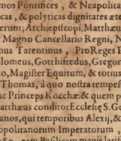 mos Pontifices, & Neapolita
cas, & politicas dignitates æte
terunt; Archiepiscopi, Matthæus
Magno Cancellario Regni, N
nus Tarentinus, ProReges I
olomeus, Gotthifredus, Gregor
o, Magister Equitum, & totius
Thomas, à quo nostra tempest
Princeps Rocchæ & quem p
atthæus conditor Ecclesiæ S. G
anos, qui temporibus Alexij, &
opolitanorum Imperatorum